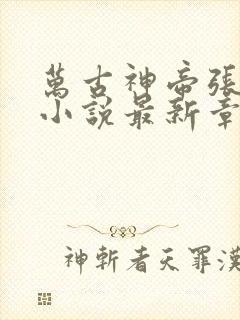 萬古神帝張
小說最新章
神斬者天罪漢